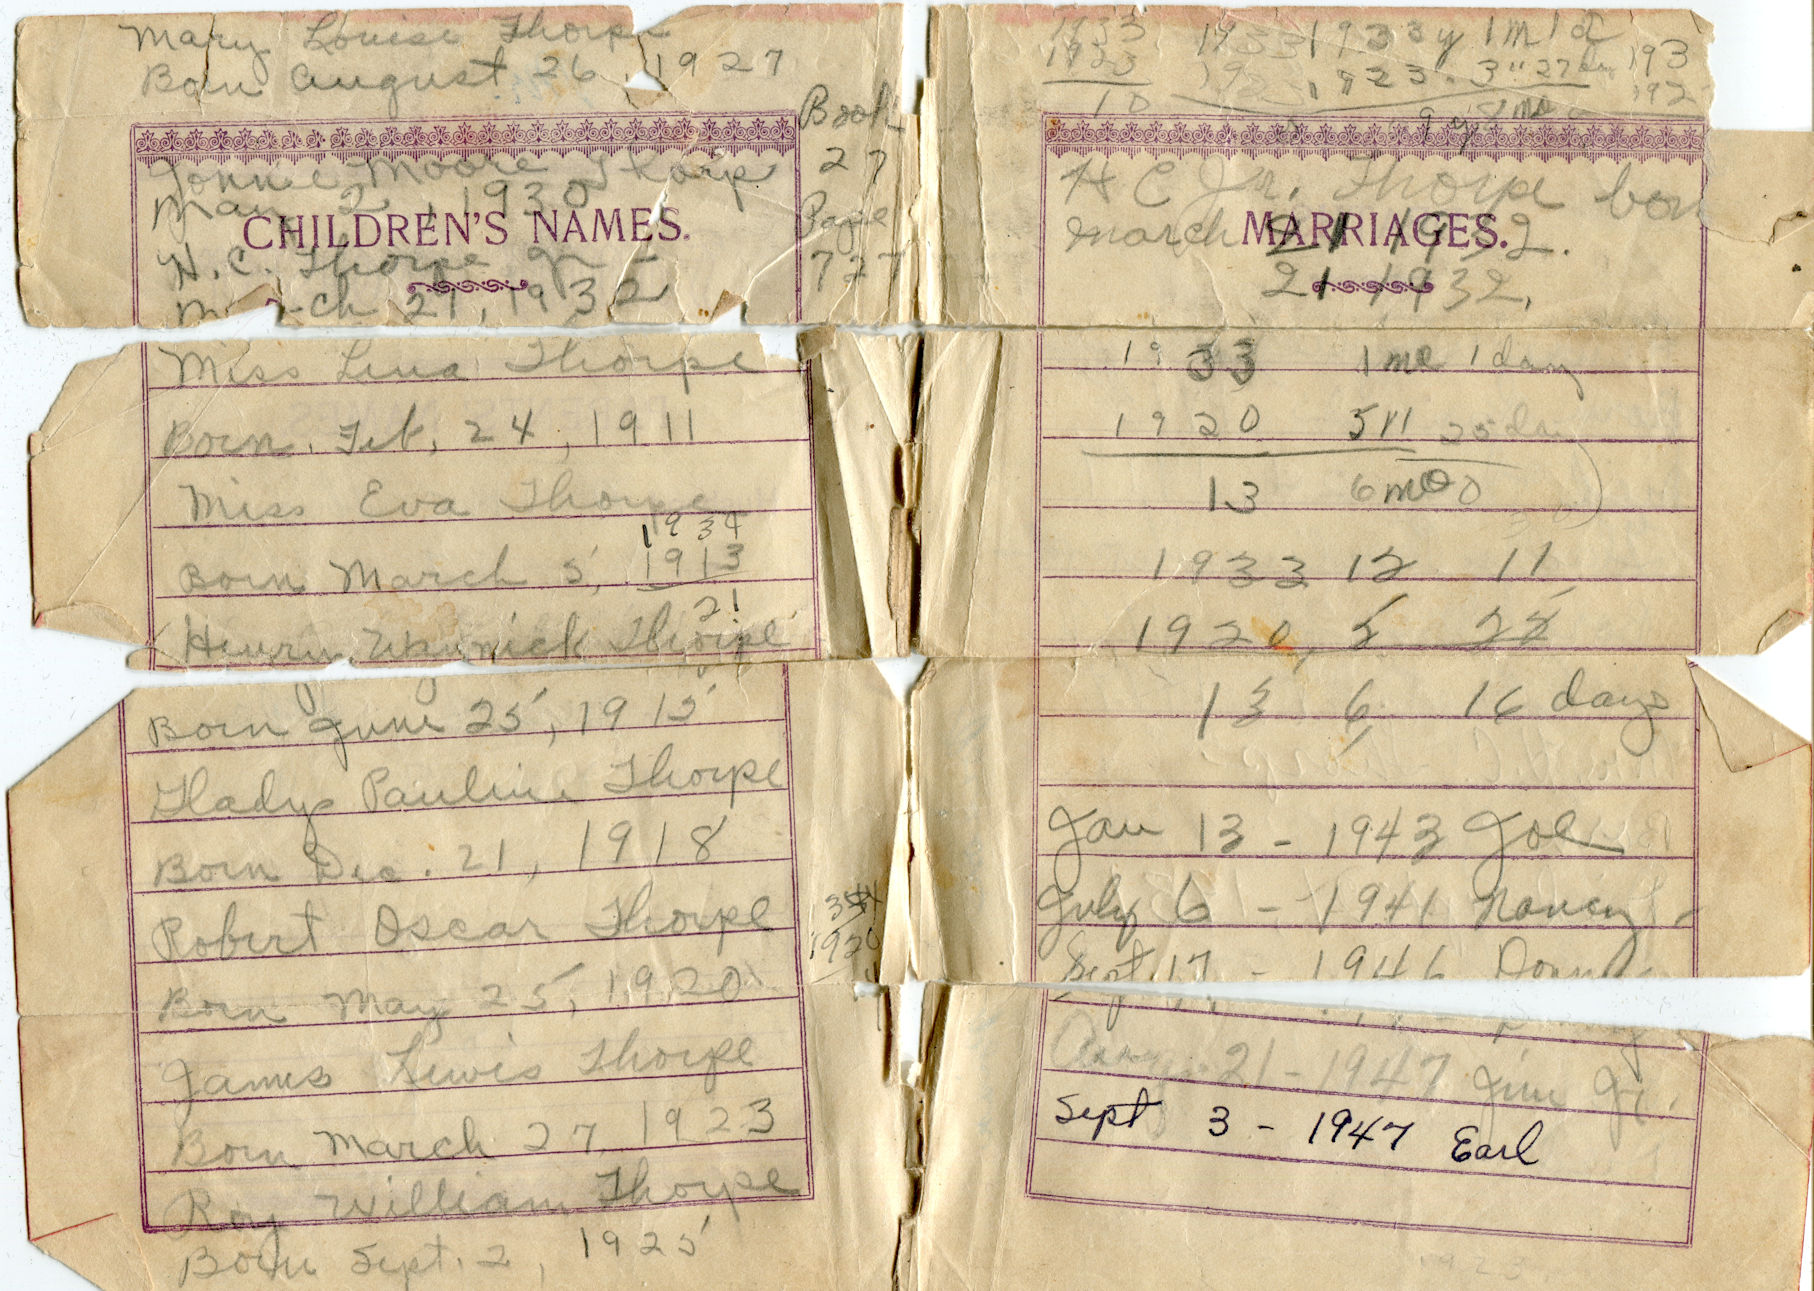 Mary Louise Thorpe
Born August 26, 1927
Book
27
Page
727
Jonnie Moore Thorpe
May 2, 1930
CHILDREN'S NAMES.
H. C. Thorpe Jr
March 21, 1932
Miss Lena Thorpe
Born. Feb. 24, 1911
Miss Eva Thorpe
1934
Born March 5, 1913
21
Henry Warnick Thorpe
Born June 25, 1915
Gladys Pauline Thorpe
Born Dec. 21, 1918
Robert Oscar Thorpe
Born May 25, 1920
1920
James Lewis Thorpe
Born March 27, 1923
Roy William Thorpe
Born Sept. 2, 1925
1933 1933 1933 y 1 m 1 d 193
1923 192 1923 - 3 " 27 da 192
10 9 y mo
H C Jr. Thorpe born
March 21 1932.
MARRIAGES.
21 1932.
1933 1 mo 1 day
1920 5 m 25 day
13 6 mo 0
1933 12 11
1920, 5 25
13 6 16 days
Jan 13 - 1943 Joe
July 6 - 1941 Nancy
Sept. 17 - 1946 Donny
Aug. 21 - 1947 Jim Jr.
Sept 3 - 1947 Earl
1923